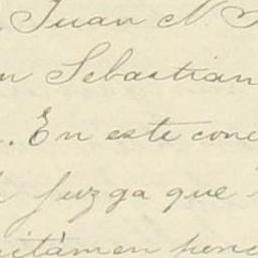 Juan N.
n Sebastian
. En este conc
juzga que